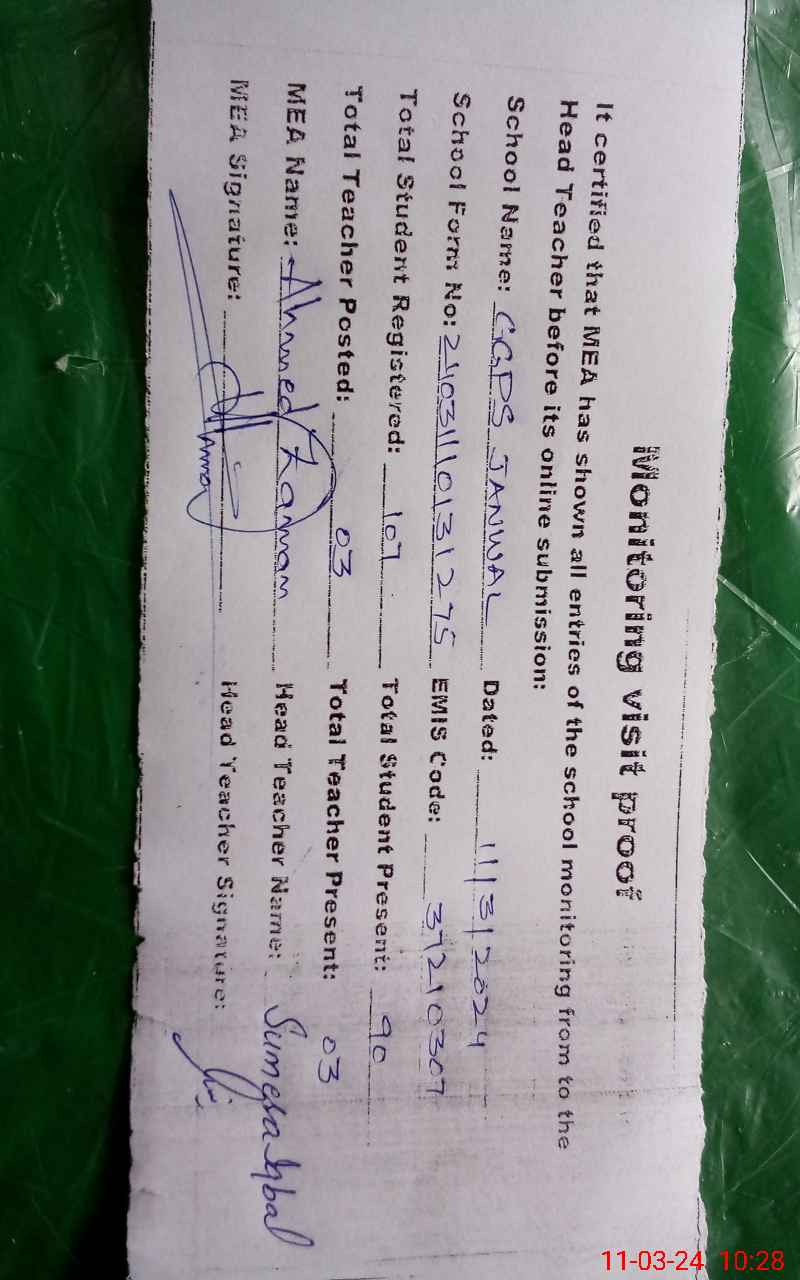 Monitoring visit proof
It certified that MEA has shown all entries of the school monitoring from to the
Head Teacher before its online submission:
School Name: GGPS JANWAL Dated: 11/3/2024
School Form No: 24031110131275 EMIS Code: 37210307
Total Student Registered: 107 Total Student Present: 90
Total Teacher Posted: 03 Total Teacher Present: 03
MEA Name: Ahmed Zaman Head Teacher Name: Sumera Iqbal
MEA Signature: Head Teacher Signature:
11-03-24 10:28